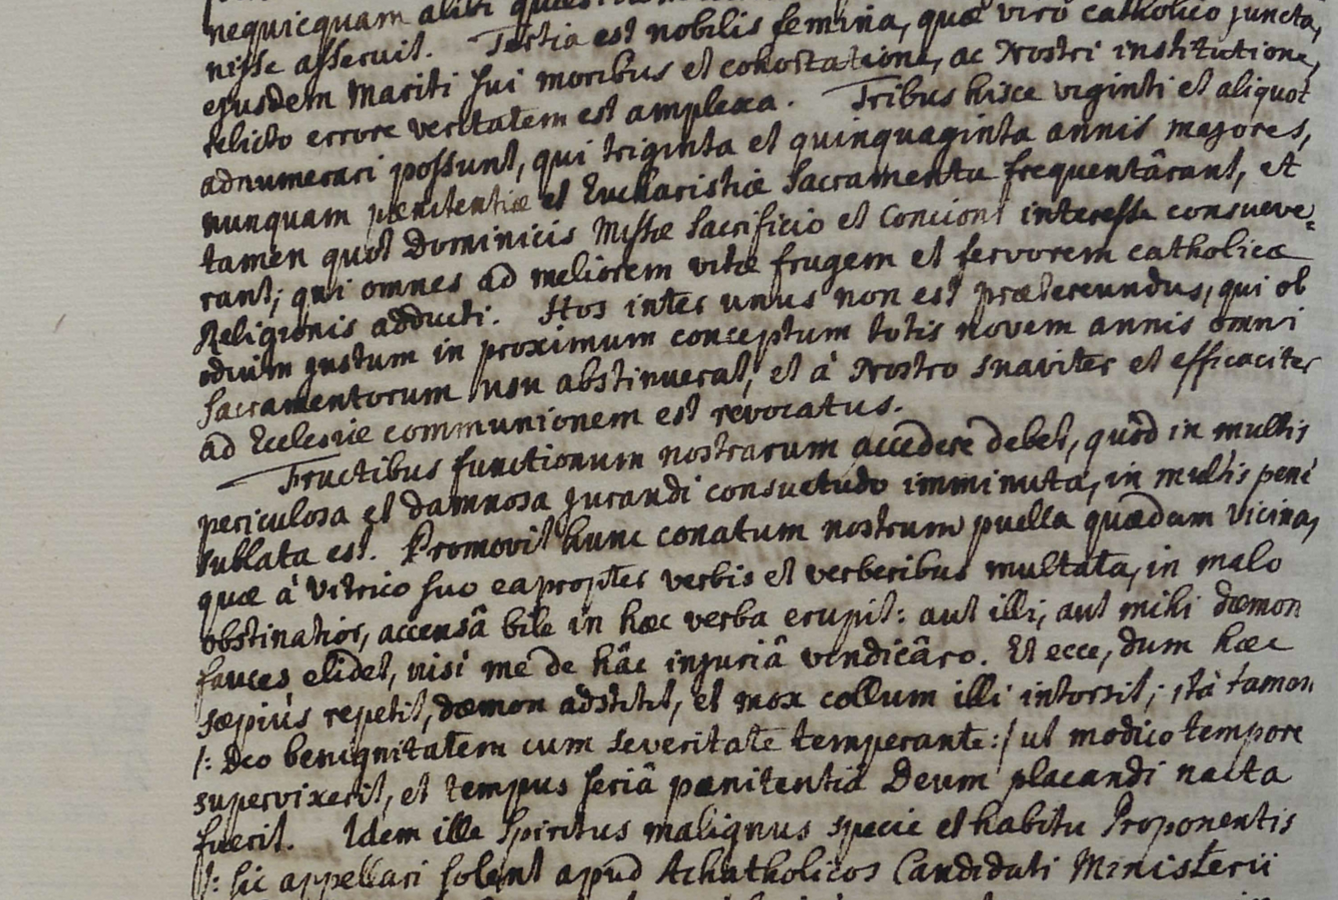 nequicquam alibi
nisse asseruit. Tertia est nobilis femina, quæ viro catholico juncta,
ejusdem Mariti sui moribus et cohortatione, ac Nostri institutione,
relicto errore veritatem est amplexa. Tribus hisce viginti et aliquot
adnumerari possunt, qui triginta et quinquaginta annis majores,
nunquam pænitentiæ et Eucharistiæ Sacramenta frequentârant, et
tamen quot Dominicis Missæ Sacrificio et Concioni interesse consueve,
rant; qui omnes ad meliorem vitæ frugem et fervorem catholicæ
Religionis adducti. Hos inter unus non est prætereundus, qui ob
odium justum in proximum conceptum totis novem annis omni
Sacramentorum usu abstinuerat, et à Nostro suaviter et efficaciter
ad Ecclesiæ communionem est revocatus.
Fructibus functionum nostrarum accedere debet, quòd in multis
periculosa et damnosa jurandi consuetudo imminuta, in multis penè
sublata est. Promovit hunc conatum nostrum puella quædam vicina,
quæ à Vitrico suo eapropter verbis et verberibus multata, in malo
obstinatior, accensâ bile in hæc verba erupit: aut illi, aut mihi dæmon
fauces elidet, nisi me de hâc injuriâ vindicâro. Et ecce, dum hæc
sæpiùs repetit, dæmon adstitit, et mox collum illi intorsit; ità tamen
/: Deo benignitatem cum severitate temperante :/ ut modico tempore
supervixerit, et tempus seriâ pænitentiâ Deum placandi nacta
fuerit. Idem ille Spiritus malignus specie et habitu Proponentis
/: sic appellari solent apud Achatholicos Candidati Ministerii